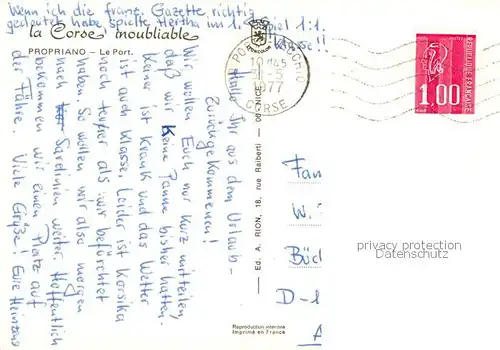 Wenn ich die franz. Gazette richtig
gedeutet habe spielte Hertha im 1. Spiel 1:1.
Klasse!!
la Corse inoubliable
PROPRIANO — Le Port.
Hallo Ihr aus dem Urlaub-
Zurückgekommenen!
Wir wollen Euch nur kurz mitteilen,
daß wir keine Panne bisher hatten.
Keiner ist krank und das Wetter
ist auch Klasse. Leider ist Korsika
noch teurer als wir befürchtet
haben. So wollen wir also morgen
nach Sardinien weiter. Hoffentlich
bekommen wir einen Platz auf
der Fähre. Viele Grüße! Eure
Ed. A. RION, 18, rue Raiberti — 06 NICE
10 H45
1977
CORSE
1,00
POSTES
REPUBLIQUE FRANÇAISE
Fam
W.
Büc
D-1
privacy protection
Datenschutz
Reproduction interdite
Imprimé en France